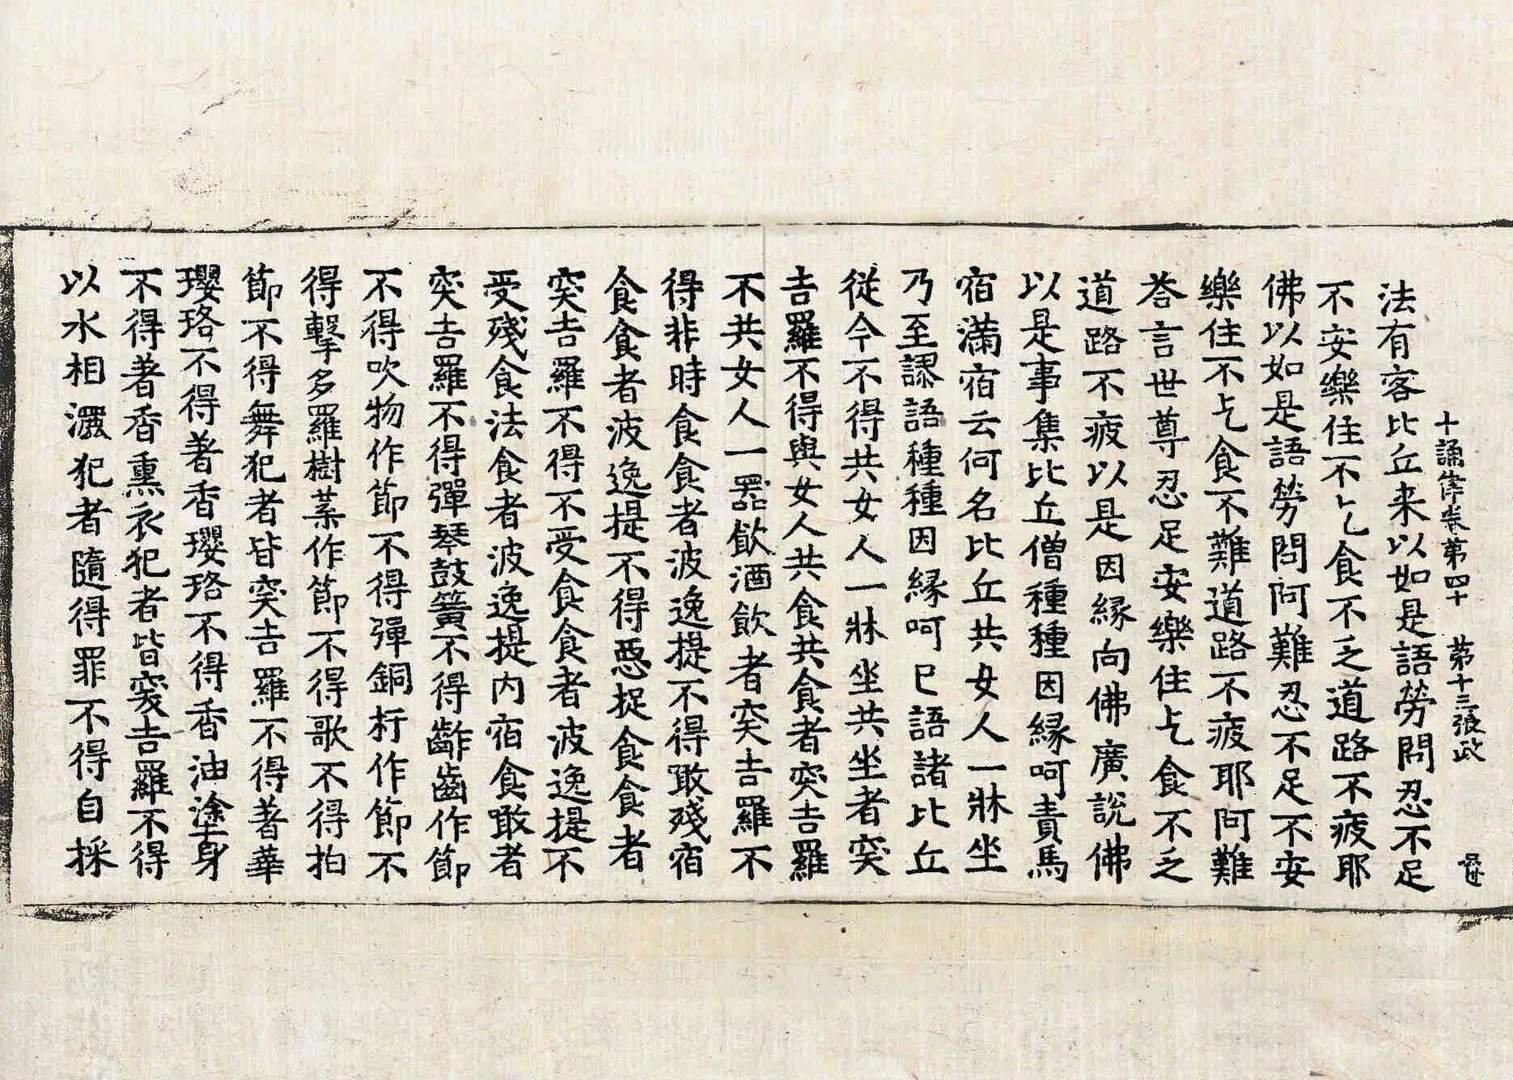 十誦律卷第四十 第十三張政
法有客比丘来以如是語勞問忍不足
不安樂住不乞食不乏道路不疲耶
佛以如是語勞問阿難忍不足不安
樂住不乞食不難道路不疲耶阿難
荅言世尊忍足安樂住乞食不乏
道路不疲以是因緣向佛廣說佛
以是事集比丘僧種種因緣呵責馬
宿滿宿云何名比丘共女人一牀坐
乃至謬語種種因緣呵已語諸比丘
從今不得共女人一牀坐共坐者突
吉羅不得與女人共食共食者突吉羅
不共女人一器飲酒飲者突吉羅不
得非時食食者波逸提不得噉殘宿
食食者波逸提不得惡捉食食者
突吉羅不得不受食食者波逸提不
受殘食法食者波逸提內宿食噉者
突吉羅不得彈琴鼓簧不得齘齒作節
不得吹物作節不得彈銅杅作節不
得擊多羅樹葉作節不得歌不得拍
節不得舞犯者皆突吉羅不得著華
瓔珞不得著香瓔珞不得香油塗身
不得著香熏衣犯者皆突吉羅不得
以水相灑犯者隨得罪不得自採